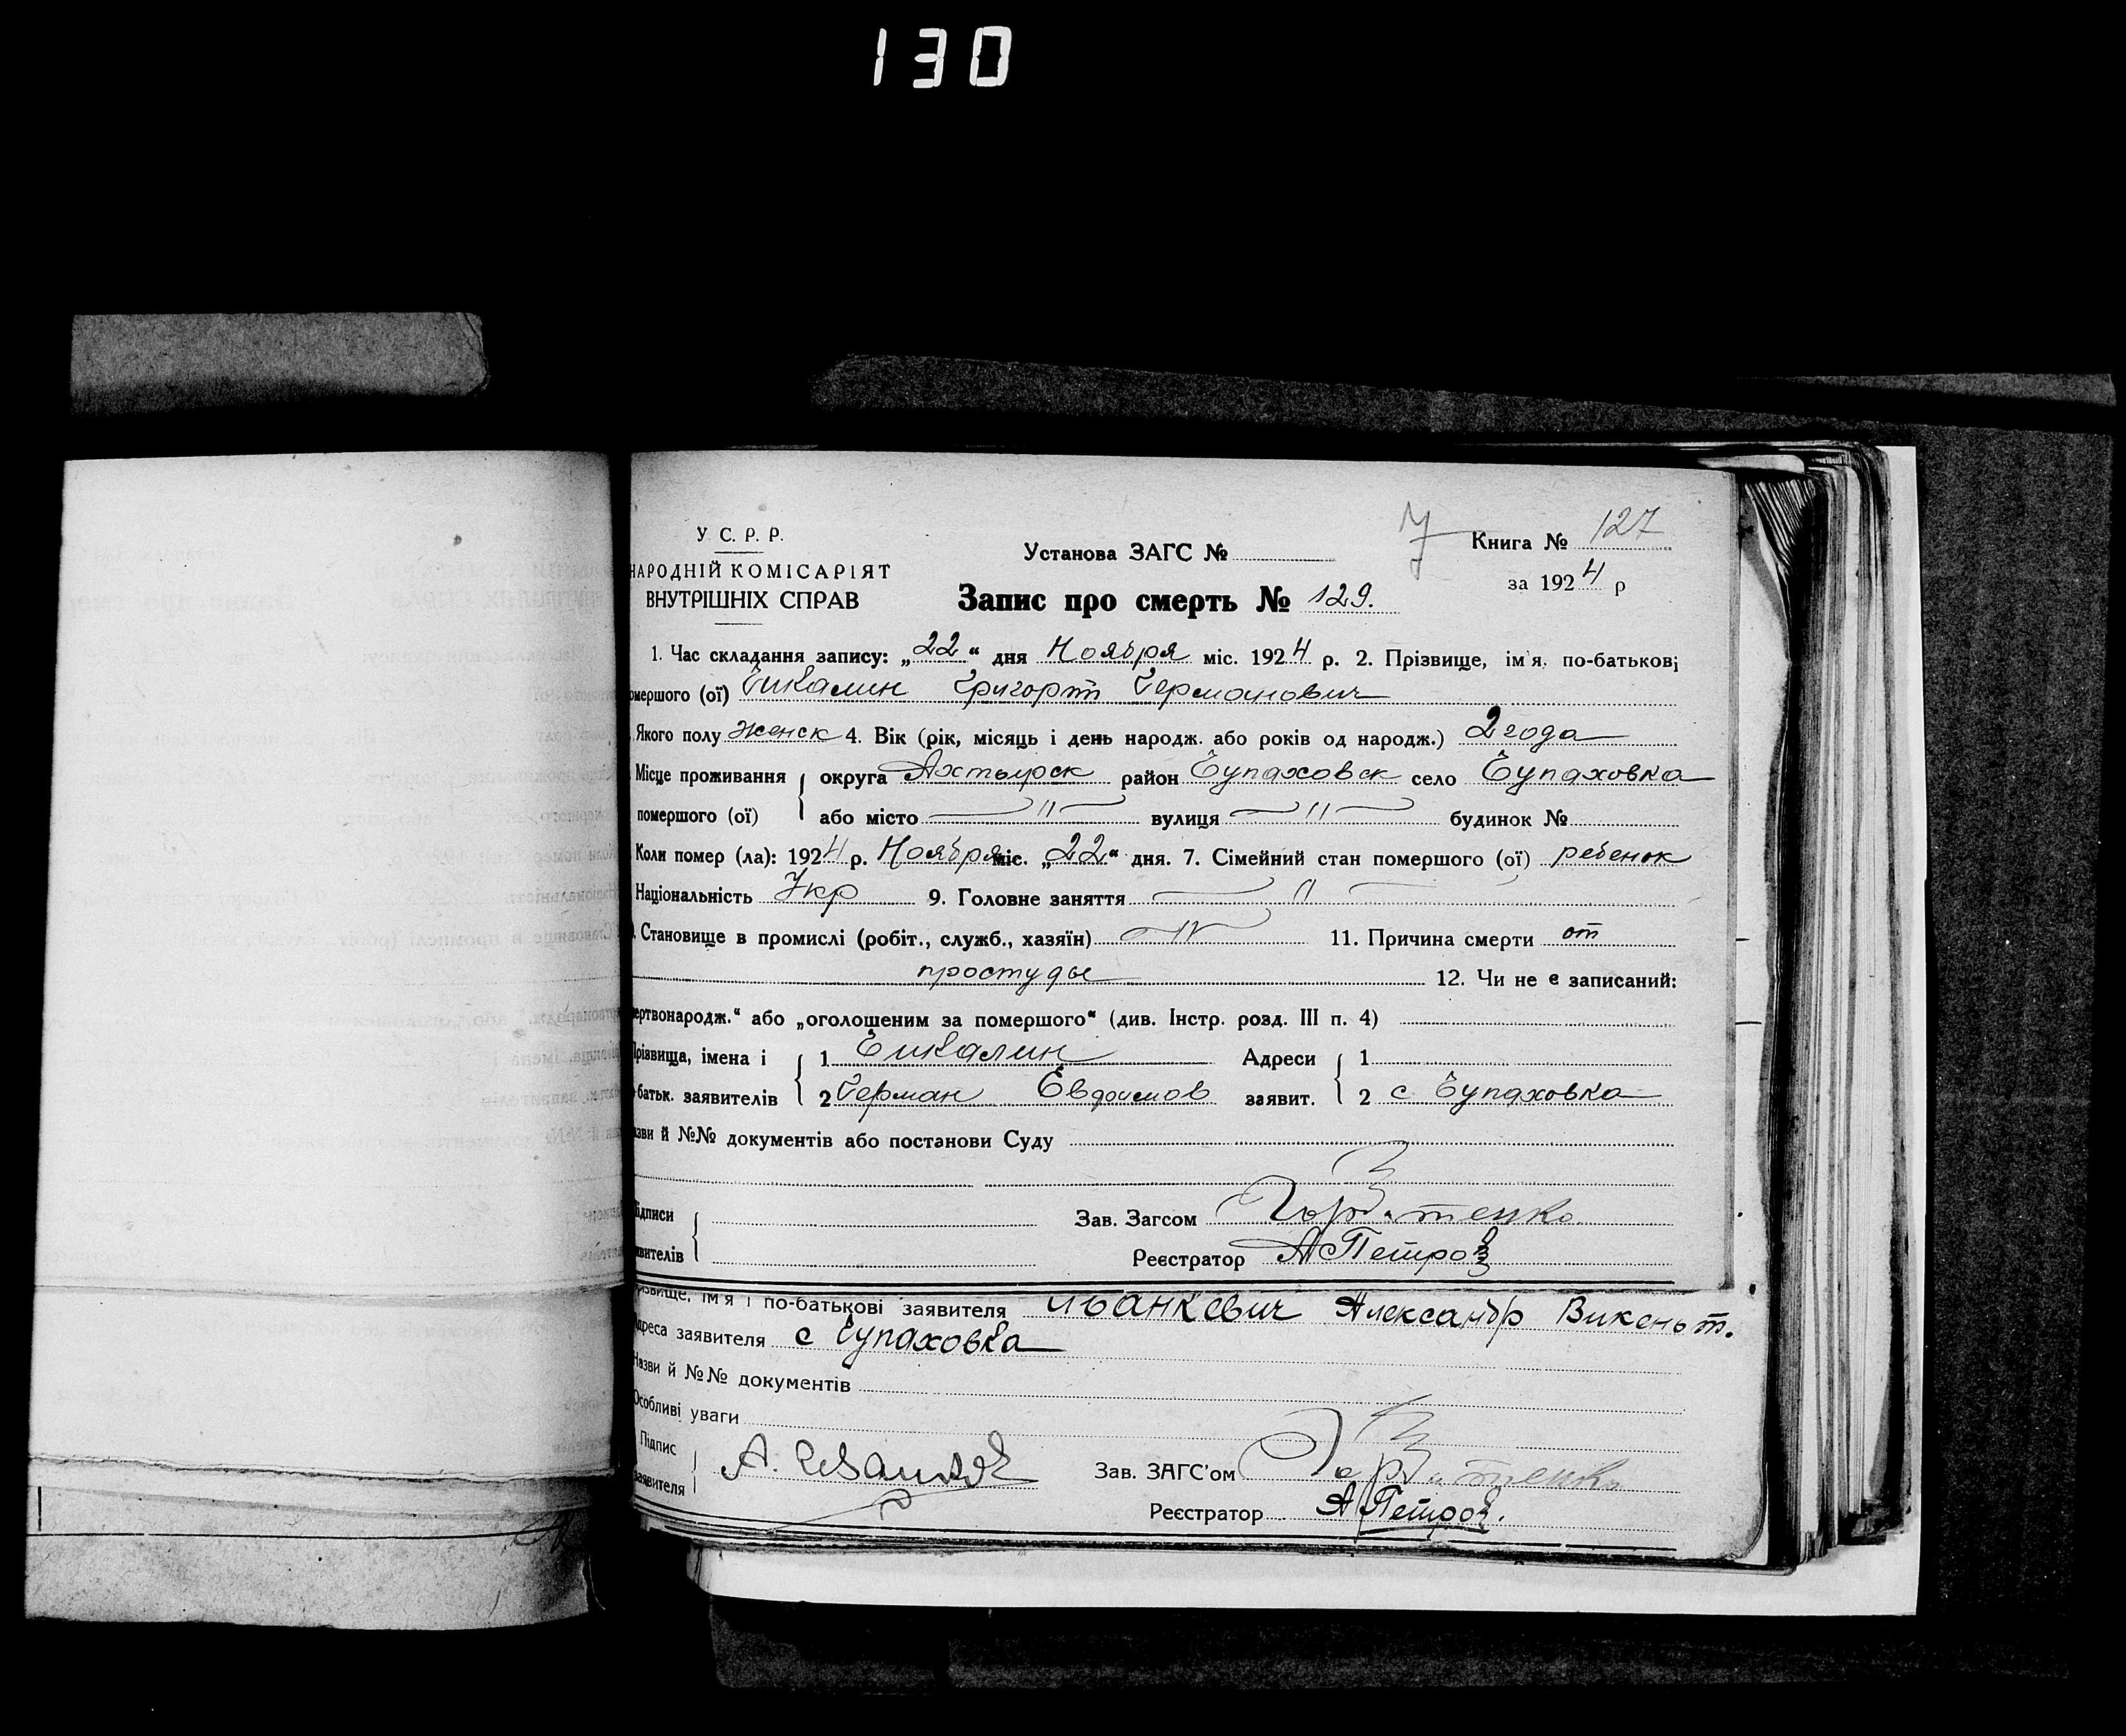 130
У С. Р. Р.
НАРОДНІЙ КОМІСАРІЯТ
ВНУТРІШНІХ СПРАВ
Установа ЗАГС №
Книга № 127
за 1924 р
Запис про смерть № 129.
1. Час складання запису: „22“ дня Ноября міс. 1924 р. 2. Прізвище, ім'я, по-батькові
омершого (ої) Германович
Якого полу женск 4. Вік (рік, місяць і день народж. або років од народж.) 2 года
Місце проживання округа Ахтырск район Чупаховск село Чупаховка
помершого (ої) або місто — 〃 — вулиця — 〃 — будинок №
Коли помер (ла): 1924 р. Ноября міс. „22“ дня. 7. Сімейний стан помершого (ої) ребенок
Національність Укр 9. Головне заняття — 〃 —
Становище в промислі (робіт., служб., хазяїн) — 〃 — 11. Причина смерти от
простуды 12. Чи не є записаний:
ертвонародж.“ або „оголошеним за помершого“ (див. Інстр. розд. III п. 4)
Прізвища, імена і 1 Адреси 1
батьк. заявителів 2 Герман Евдокимов заявит. 2 с Чупаховка
зви й №№ документів або постанови Суду
ідписи Зав. Загсом
явителів Реєстратор А Петров
різвище, ім'я і по-батькові заявителя Иванкевич Александр Викеньт.
дреса заявителя с Чупаховка
Назви й №№ документів
Особливі уваги
Підпис
заявителя Зав. ЗАГС'ом
Реєстратор А Петров.